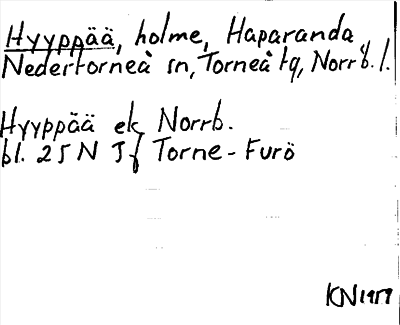 Hyyppää, holme, Haparanda
Nedertorneå sn, Torneå tg, Norrb. l.
Hyyppää ek Norrb.
bl. 25 N Torne-Furö
KN 1959